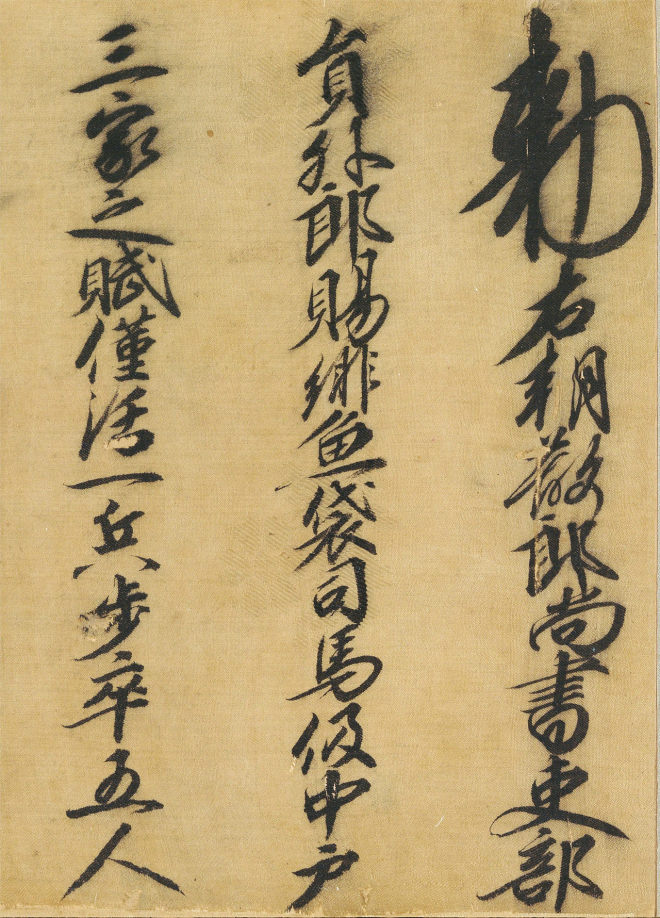 勅右朝散郎尚書吏部
員外郎賜緋魚袋司馬伋中户
三家之賦僅活一兵步卒五人